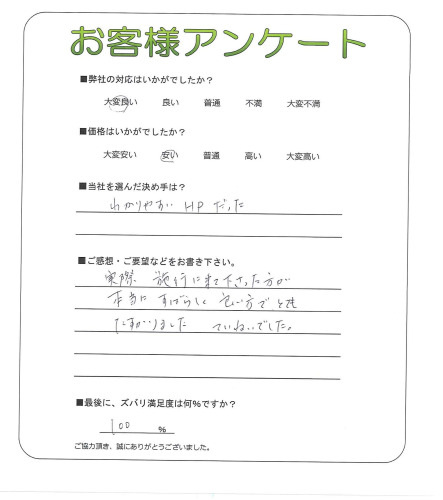 お客様アンケート
■弊社の対応はいかがでしたか?
大変良い 良い 普通 不満 大変不満
■価格はいかがでしたか?
大変安い 安い 普通 高い 大変高い
■当社を選んだ決め手は?
わかりやすい HP だった
■ご感想・ご要望などをお書き下さい。
実際 施行に来て下さった方が
本当に すばらしく 良い方でとても
たすかりました ていねいでした。
■最後に、ズバリ満足度は何%ですか?
100 %
ご協力頂き、誠にありがとうございました。